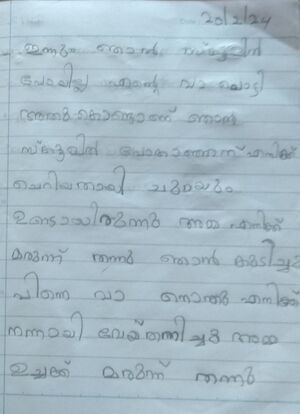 20/2/24
ഇന്നും ഞാൻ സ്കൂളിൽ
പോയില്ല എന്റെ വാ പൊട്ടി
അതുകൊണ്ടാണ് ഞാൻ
സ്കൂളിൽ പോകാഞ്ഞത് എനിക്ക്
ചെറിയതായി ചുമയും
ഉണ്ടായിരുന്നു അമ്മ എനിക്ക്
മരുന്ന് തന്നു ഞാൻ കുടിച്ചു
പിന്നെ വാ നൊന്തു എനിക്ക്
നന്നായി വേദനിച്ചു അമ്മ
ഉച്ചക്ക് മരുന്ന് തന്നു